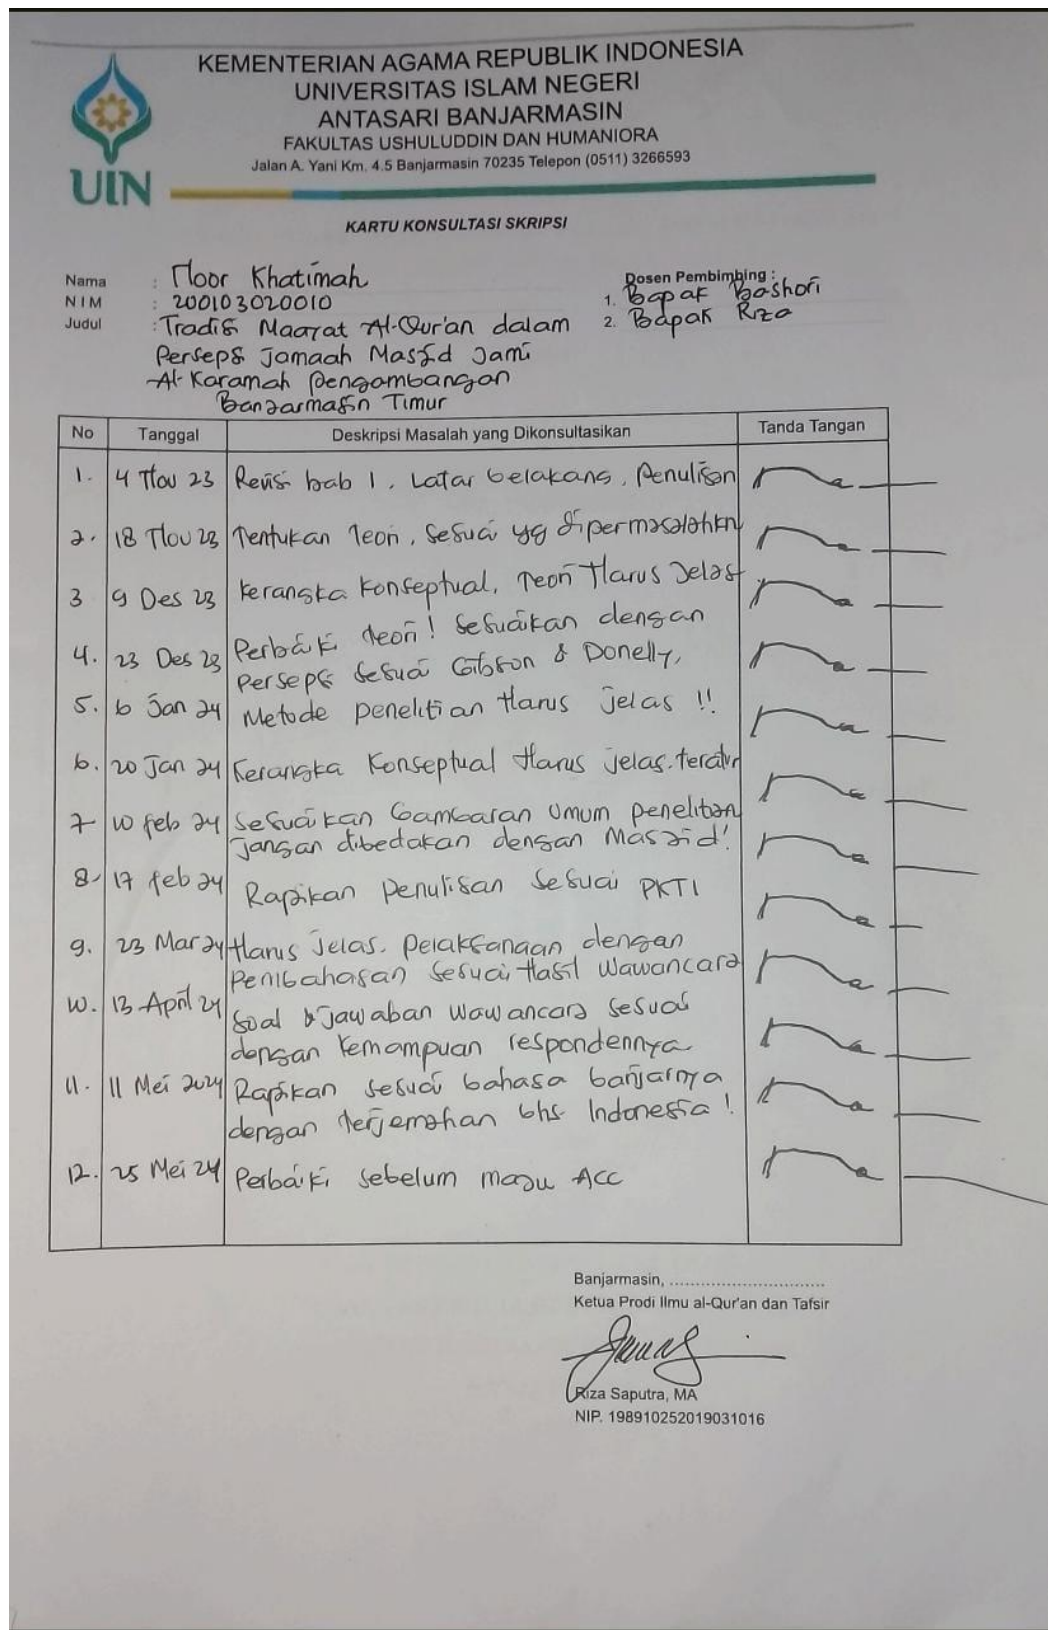 KEMENTERIAN AGAMA REPUBLIK INDONESIA
UNIVERSITAS ISLAM NEGERI
ANTASARI BANJARMASIN
FAKULTAS USHULUDDIN DAN HUMANIORA
Jalan A. Yani Km. 4.5 Banjarmasin 70235 Telepon (0511) 3266593
UIN
KARTU KONSULTASI SKRIPSI
Nama : Noor Khatimah
NIM : 200103020010
Judul : Tradisi Maarat Al-Qur'an dalam
Persepsi Jamaah Masjid Jami
Al-Karamah Pengambangan
Banjarmasin Timur
Dosen Pembimbing :
1. Bapak Bashori
2. Bapak Riza
No Tanggal Deskripsi Masalah yang Dikonsultasikan Tanda Tangan
1. 4 Nov 23 Revisi bab 1, Latar belakang, Penulisan
2. 18 Nov 23 Tentukan Teori, Sesuai yg dipermasalahkn
3 9 Des 23 Kerangka Konseptual, Teori Harus Jelas
4. 23 Des 23 Perbaiki teori! Sesuaikan dengan
Persepsi Sesuai Gibson & Donelly,
5. 6 Jan 24 Metode penelitian Harus jelas !!
6. 20 Jan 24 Kerangka Konseptual Harus jelas. teratur
7 10 feb 24 Sesuaikan Gambaran Umum penelitian
jangan dibedakan dengan Masjid!
8. 17 feb 24 Rapikan Penulisan Sesuai PKTI
9. 23 Mar 24 Harus Jelas. Pelaksanaan dengan
Pembahasan Sesuai Hasil Wawancara
10. 13 April 24 Soal & Jawaban Wawancara sesuai
dengan Kemampuan respondennya
11. 11 Mei 2024 Rapikan sesuai bahasa banjarnya
dengan terjemahan bhs Indonesia !
12. 25 Mei 24 Perbaiki sebelum maju ACC
Banjarmasin, ..............................
Ketua Prodi Ilmu al-Qur'an dan Tafsir
Riza Saputra, MA
NIP. 198910252019031016